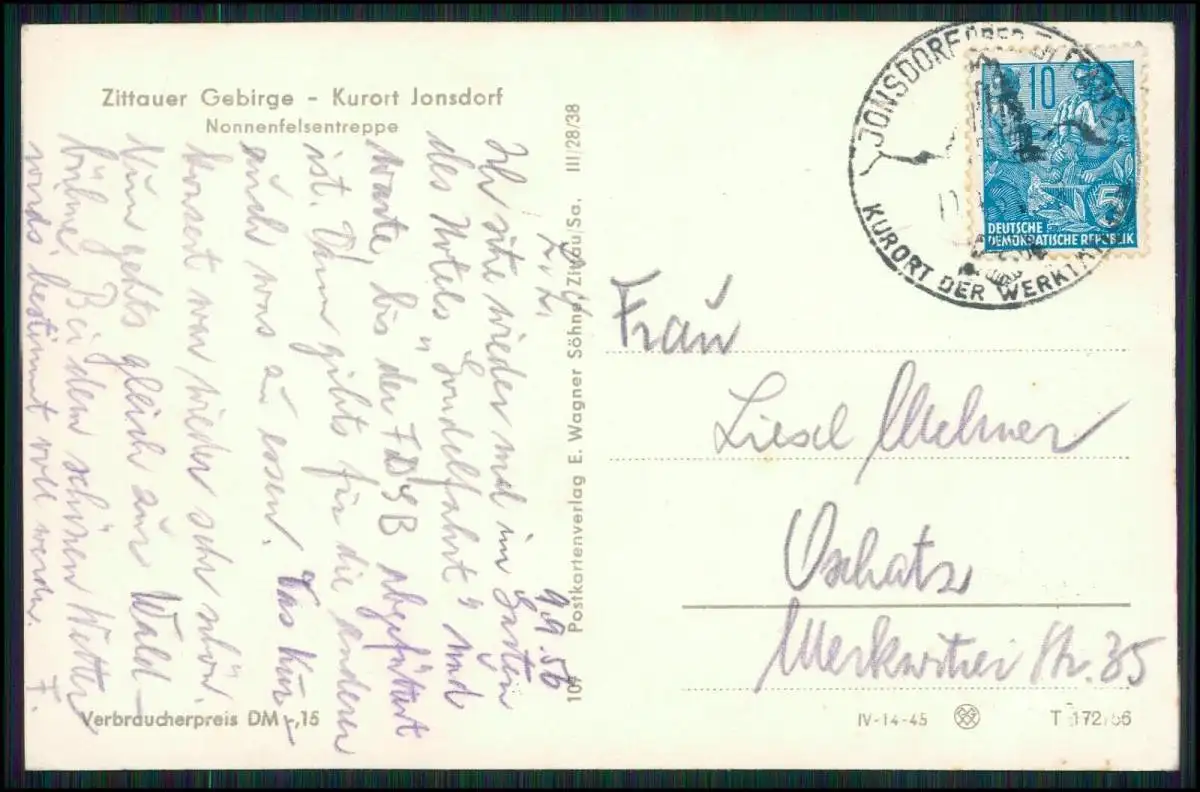 Zittauer Gebirge - Kurort Jonsdorf
Nonnenfelsentreppe
9.9.56
Ich sitze wieder mal im Garten
des Hotels „Gondelfahrt“ und
warte, bis der FDGB abgefüttert
ist. Dann gibts für die anderen
auch was zu essen. Das Kur-
konzert war wieder sehr schön.
Nun gehts gleich zur Wald-
bühne. Bei dem schönen Wetter
wirds bestimmt voll werden. F.
Verbraucherpreis DM -,15
109 Postkartenverlag E. Wagner Söhne, Zittau/Sa. III/28/38
JONSDORF
KURORT DER WERKTÄTIGEN
10
5
DEUTSCHE
DEMOKRATISCHE REPUBLIK
Frau
Liesel
Oschatz
Merkwitzer Str. 35
IV-14-45 T 172/56